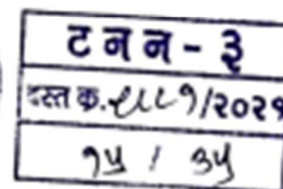 ट न न - ३
दस्त क्र. ५८८१/२०२१
१५ / ३५